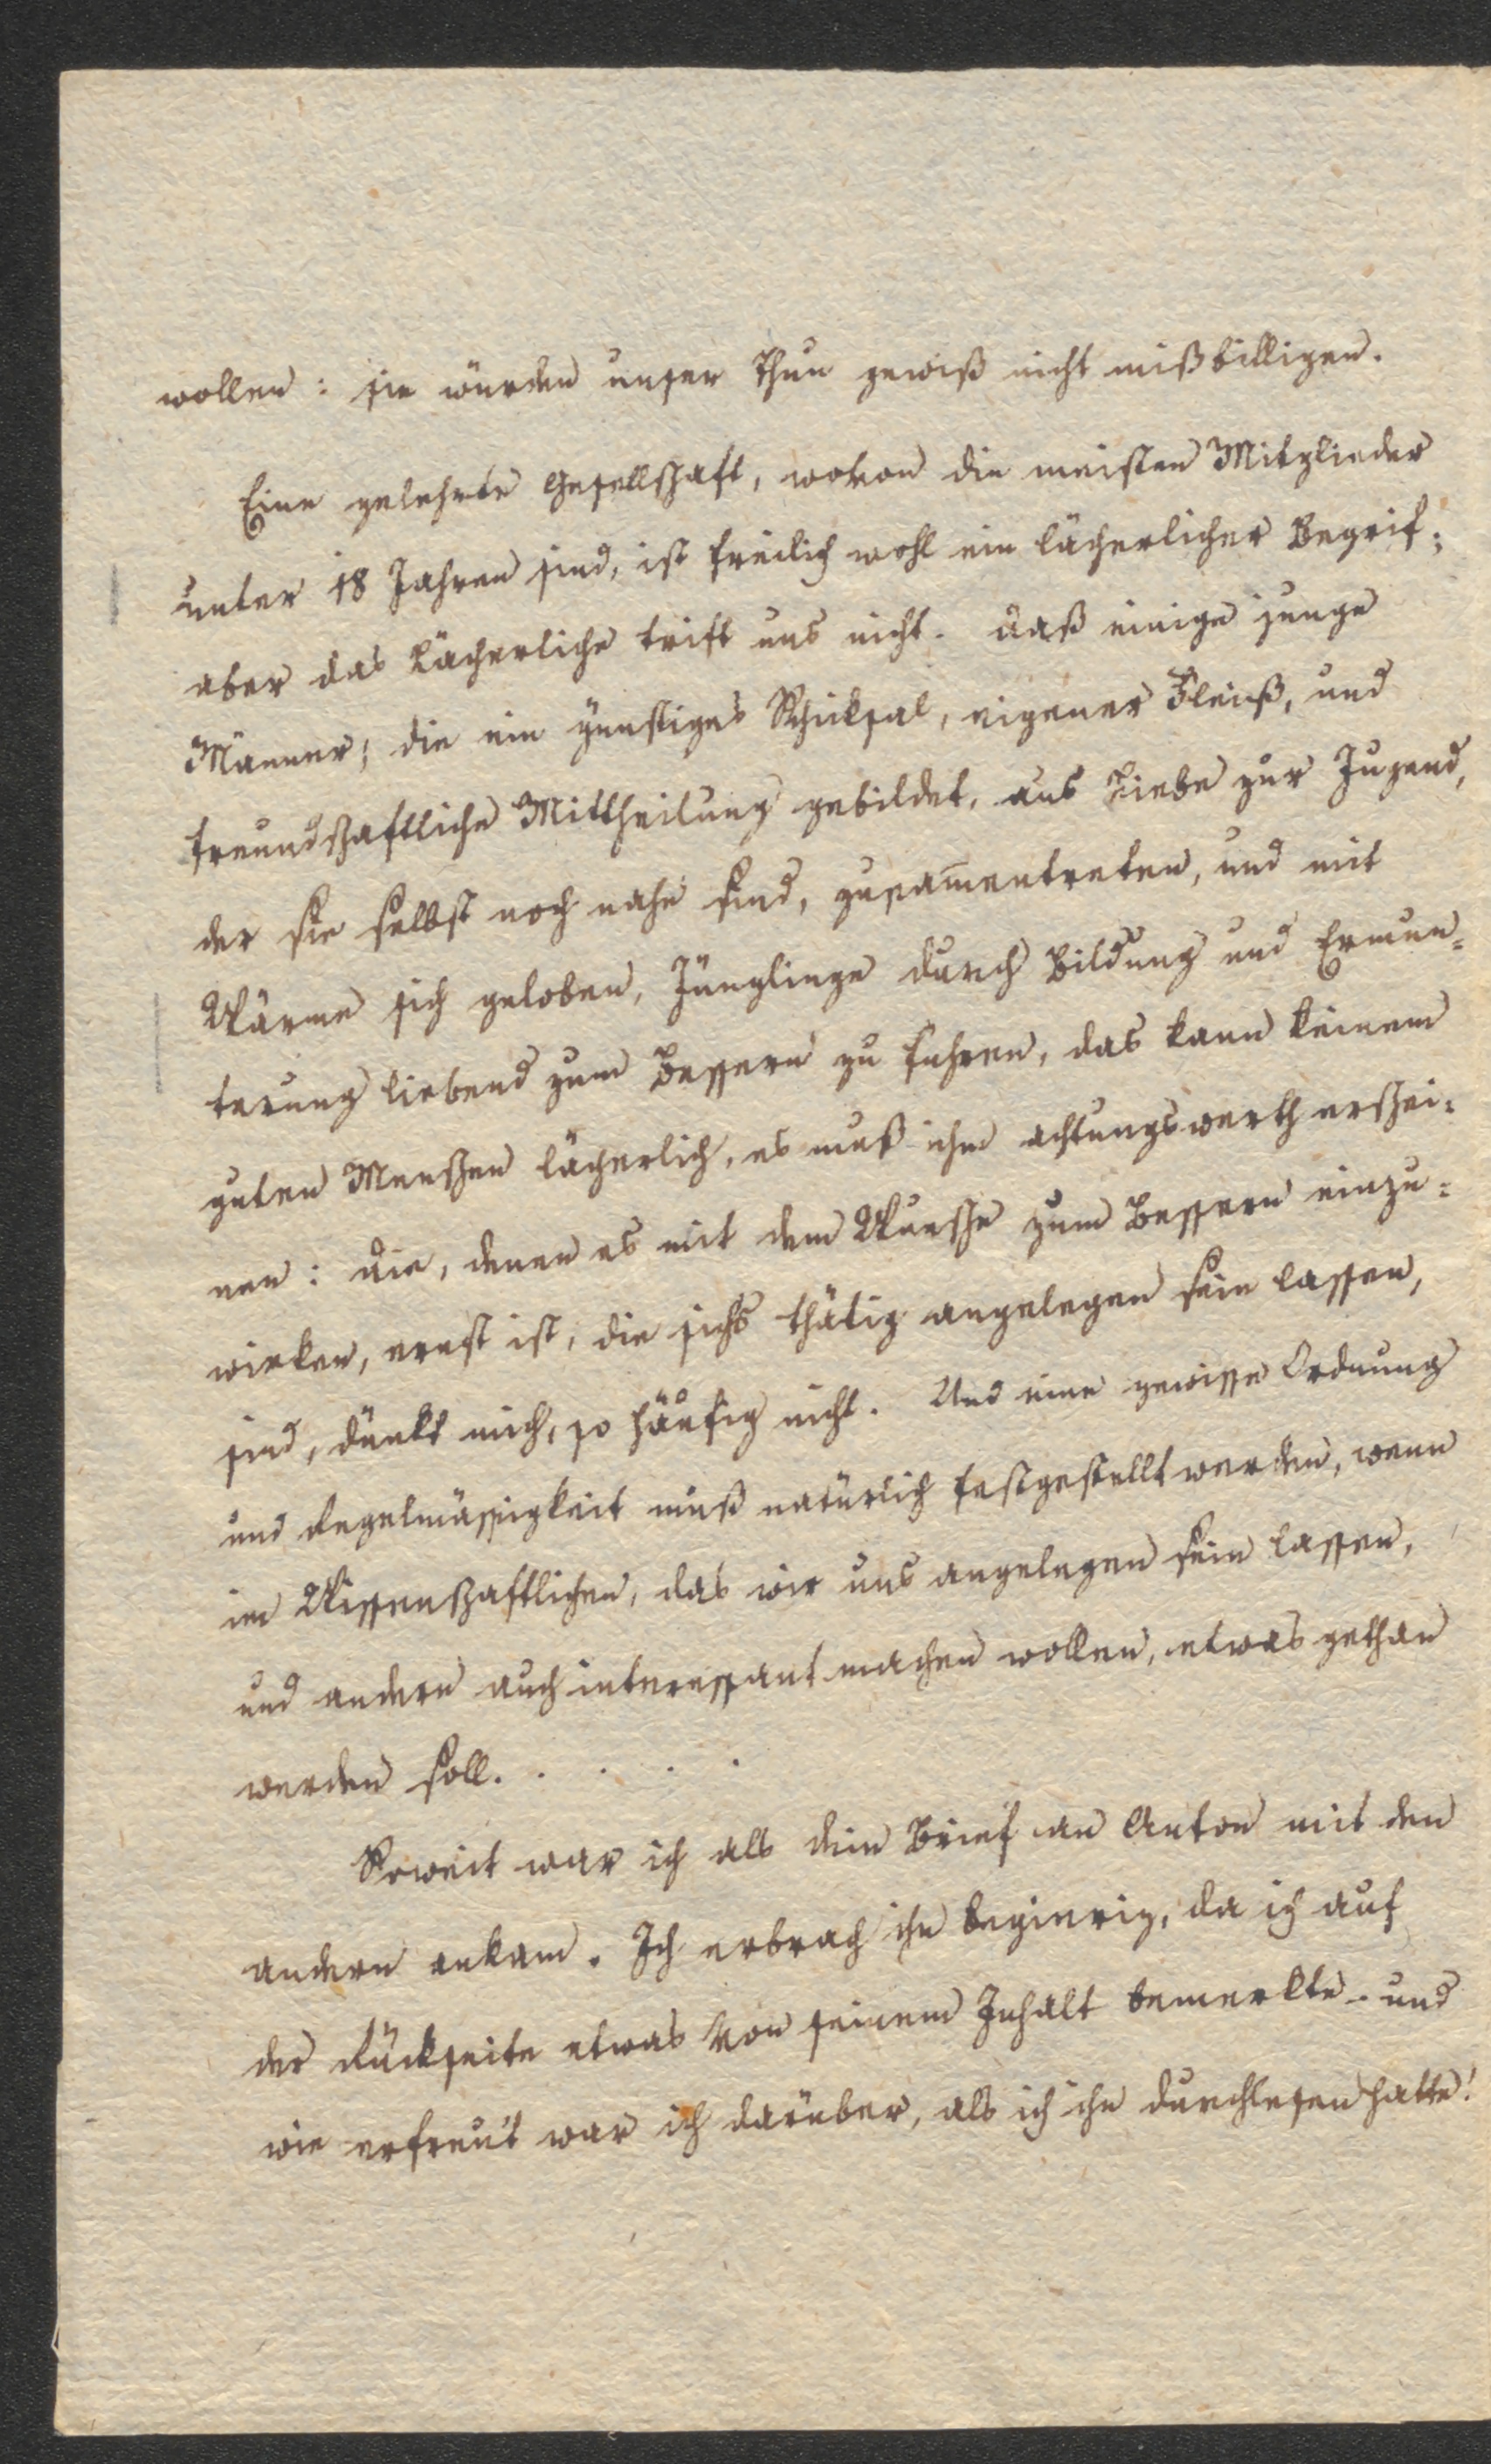 wollen: sie würden unser Thun gewiß nicht mißbilligen.
Eine gelehrte Gesellschaft, wovon die meisten Mitglieder
unter 18 Jahren sind, ist freilich wohl ein lächerlicher Begrif;
aber das Lächerliche trift uns nicht. Daß einige junge
Männer, die ein günstiges Schiksal, eigener Fleiß, und
freundschaftliche Mittheilung gebildet, aus Liebe zur Jugend,
der sie selbst noch nahe sind, zusam̄entreten, und mit
Wärme sich geloben, Jünglinge durch Bildung und Ermun=
terung liebend zum Bessern zu führen, das kann keinem
guten Menschen lächerlich, es muß ihm achtungswerth erschei=
nen: die, denen es mit dem Wunsche zum Bessern einzu=
wirken, ernst ist, die sichs thätig angelegen sein lassen,
sind, dünkt mich, so häufig nicht. Und eine gewisse Ordnung
und Regelmässigkeit muß natürlich festgestellt werden, wenn
im Wissenschaftlichen, das wir uns angelegen sein lassen,
und andern auch interessant machen wollen, etwas gethan
werden soll. . . . .
Soweit war ich als dein Brief an Anton mit den
andern ankam. Ich erbrach ihn begierig, da ich auf
der Rückseite etwas von seinem Inhalt bemerkte - und
wie erfreut war ich darüber, als ich ihn durchlesen hatte!